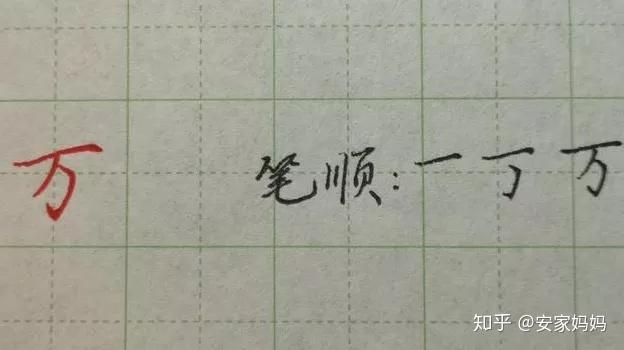 万 笔顺:一 丁 万
知乎 @安家妈妈